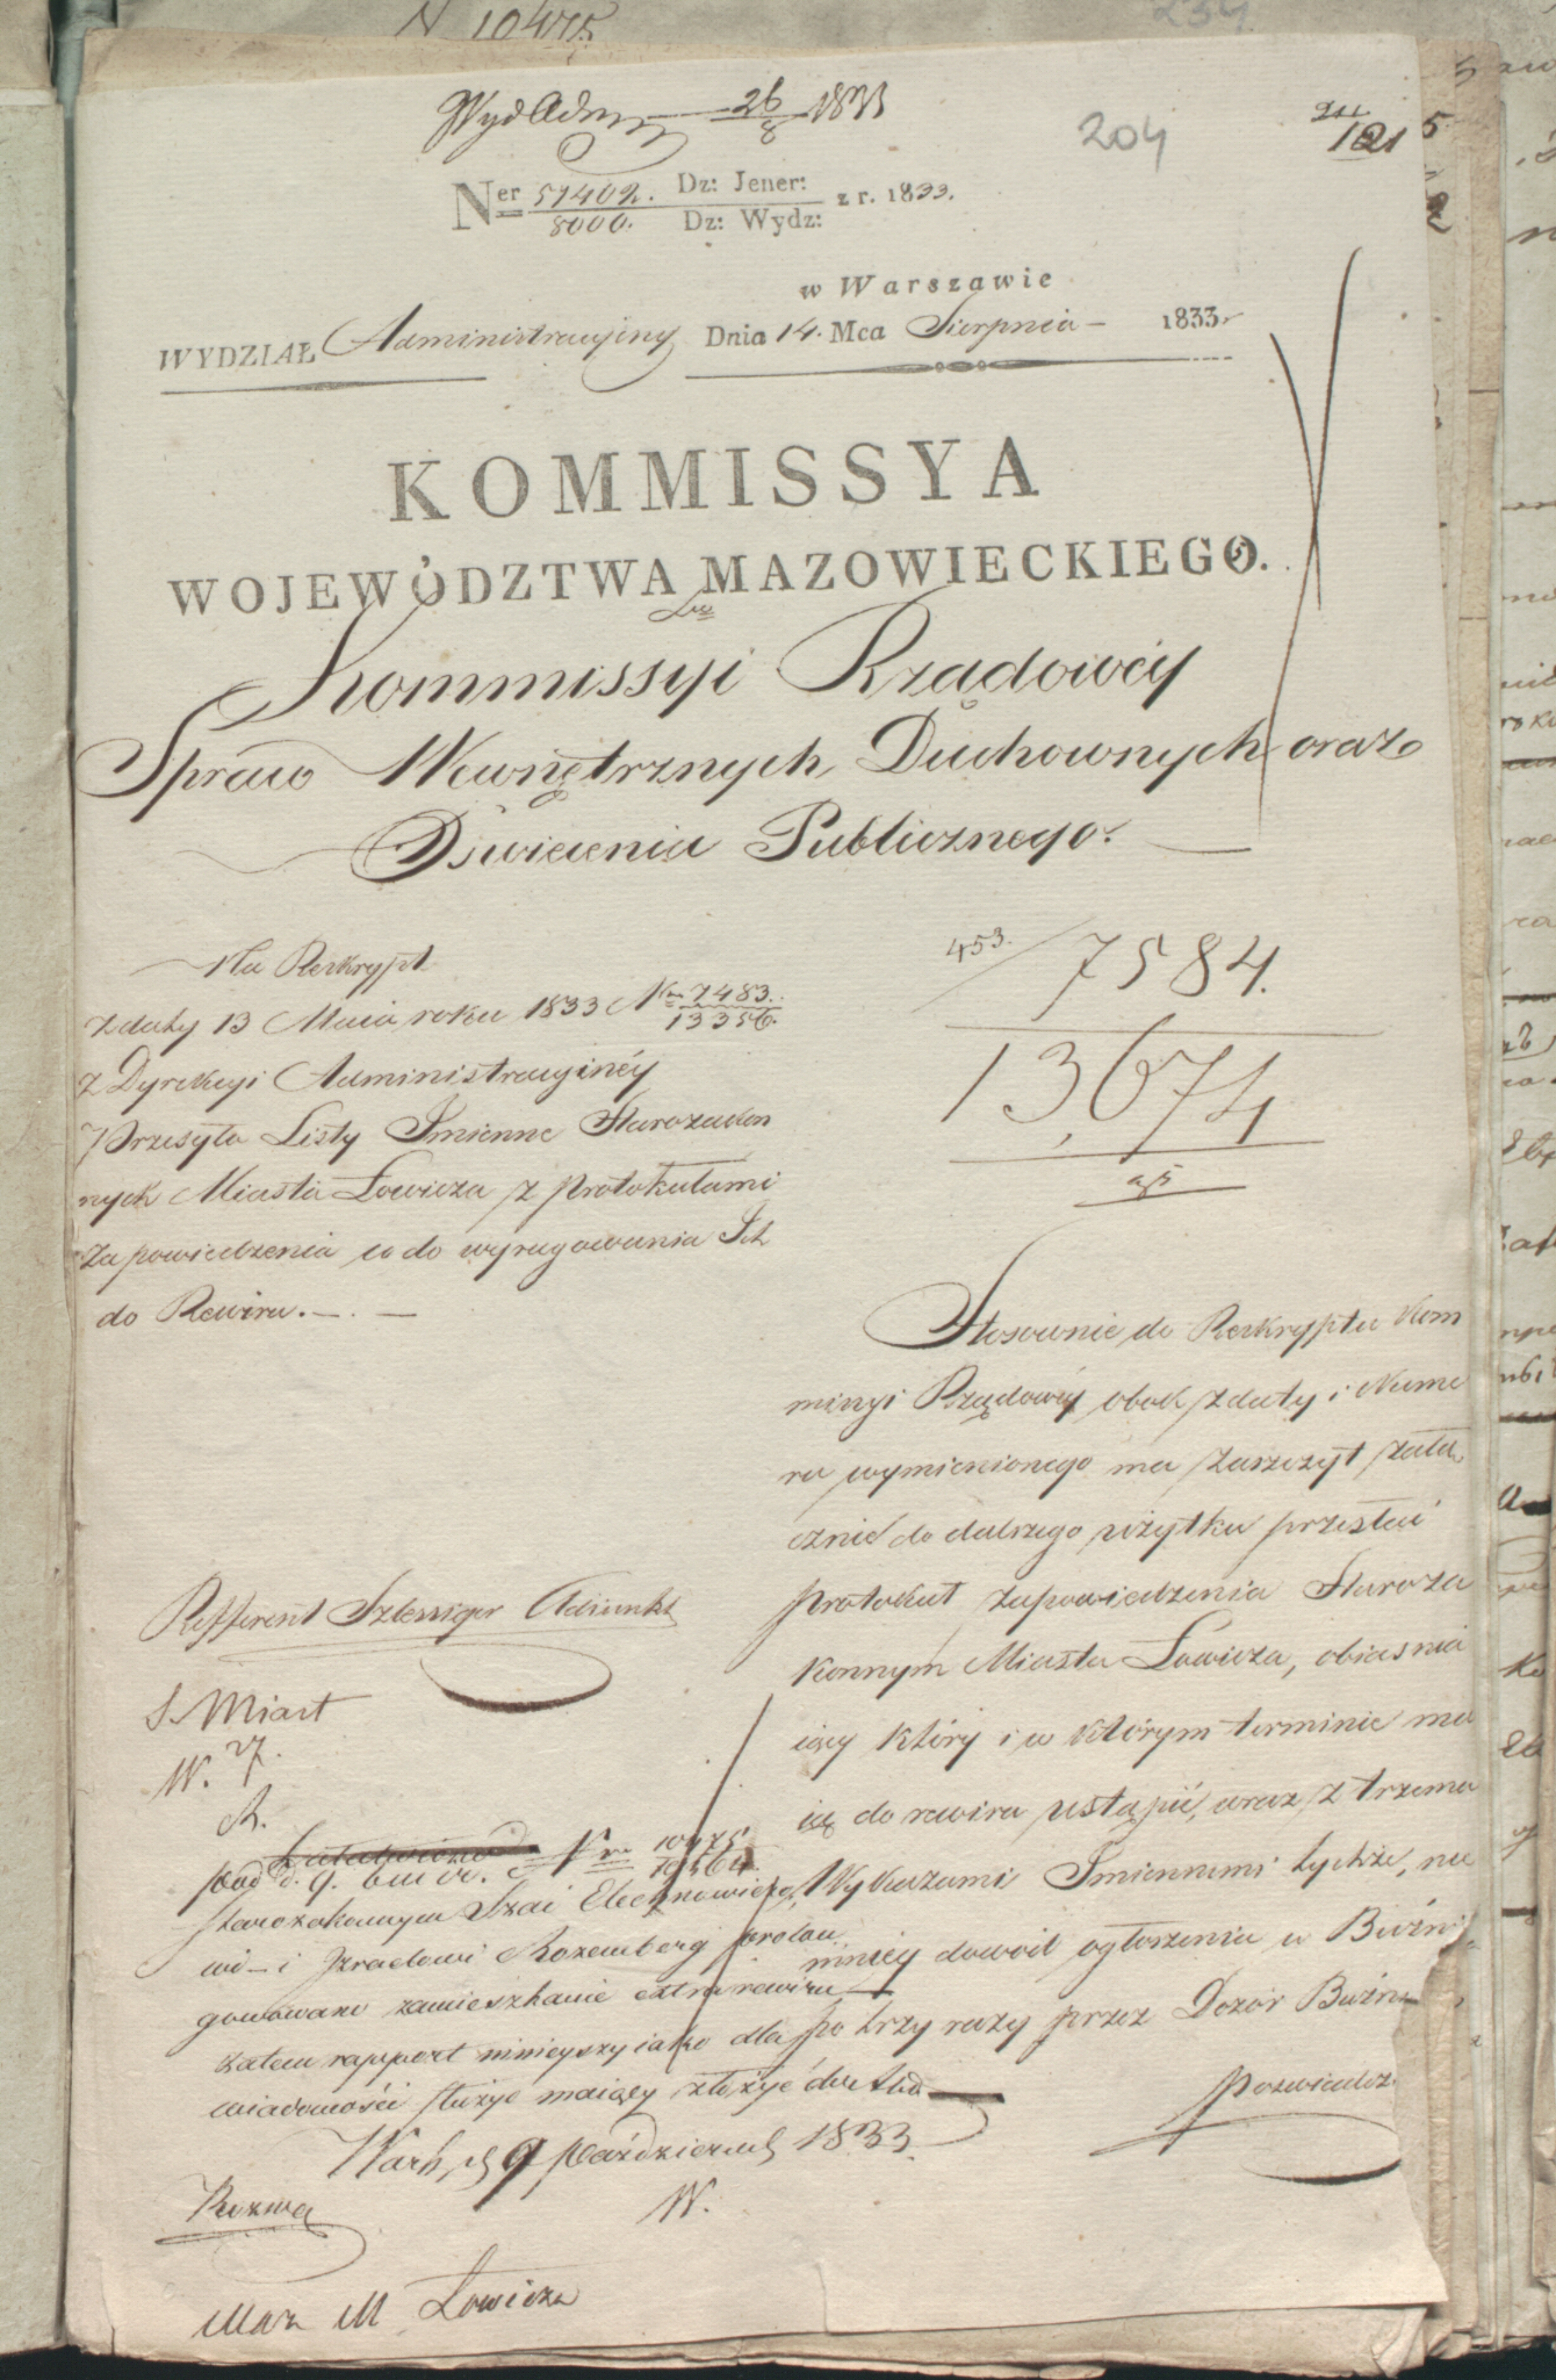 N 10475
234
Wyd Adm 26/8 1833
204
121
Ner 51402. Dz: Jener: z r. 1833.
8000. Dz: Wydz:
w Warszawie
WYDZIAŁ Administracyjny Dnia 14. Mca Sierpnia – 1833.
KOMMISSYA
WOJEWÓDZTWA MAZOWIECKIEGO.
Do
Kommissyi Rządowéy
Spraw Wewnętrznych, Duchownych oraz
Oświecenia Publicznego.
Na Reskrypt
z daty 13 Maia roku 1833 Nr 7483.
13356.
z Dyrekcyi Administracyinéy
Przesyła Listy Imienne Starozakon
nych Miasta Łowicza z protokułami
zapowiedzenia co do wyrugowania Ich
do Rewiru. —
453. 7584.
13,674
Stosownie do Reskryptu Kom
missyi Rządowéy obok z daty i Nume
ru wymienionego ma zaszczyt załą
cznie do dalszego użytku przesłać
protokuł zapowiedzenia Staroza
konnym Miasta Łowicza, obiasnia
iący który i w którym terminie ma
ią do rewiru ustąpić, wraz z trzema
Wykazami Imiennemi tychże, nie
mniéy dowód ogłoszenia w Bużni
po trzy razy przez Dozór Bużni
poswiadcz.
Refferent Szlessiger Adiunkt
S. Miast
W. 27.
pod d. 9. b m i r. Nr 10475
Starozakonnym Szai Elechnowiczo
wi – i Izraelowi Rozemberg prolon
gowano zamieszkanie extra rewiru
zatem rapport ninieyszy iako dla
wiadomości służyć maiący złożyć do Akt
Warsz, d 9 październ 1833.
W.
Rozwa
Maz M Łowicza